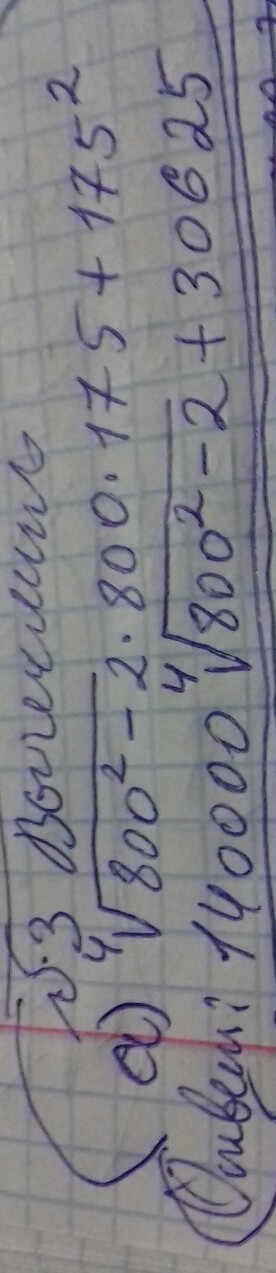 №3 Вычислить
а) ⁴√800² - 2·800·175 + 175²
Ответ: 140000 ⁴√800² - 2 + 30625